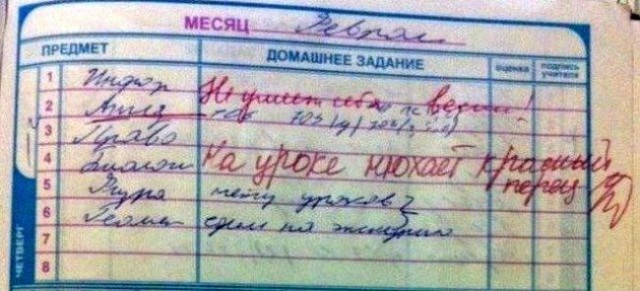 МЕСЯЦ Феврал
ПРЕДМЕТ ДОМАШНЕЕ ЗАДАНИЕ оценка подпись учителя
1 Инфор Не умеет себя вести!
2 Англ
3 Право
4 Биологи На уроке нюхает красный
перец
5 Физра нету уроков
6 Геомет
7
8
ЧЕТВЕРГ